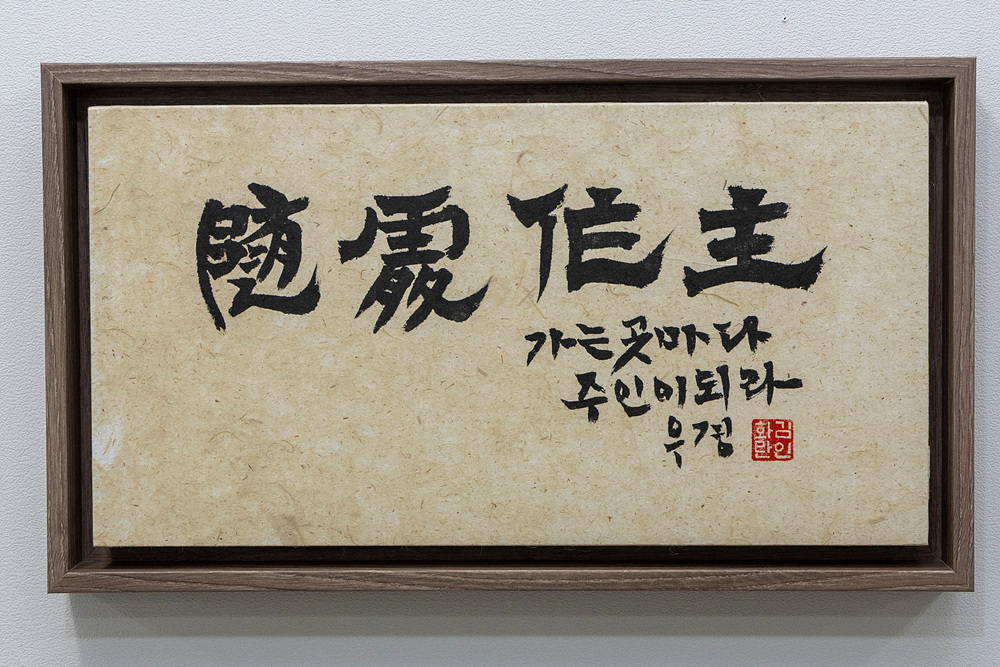 隨處作主
가는곳마다
주인이되라
우겸
김화란인